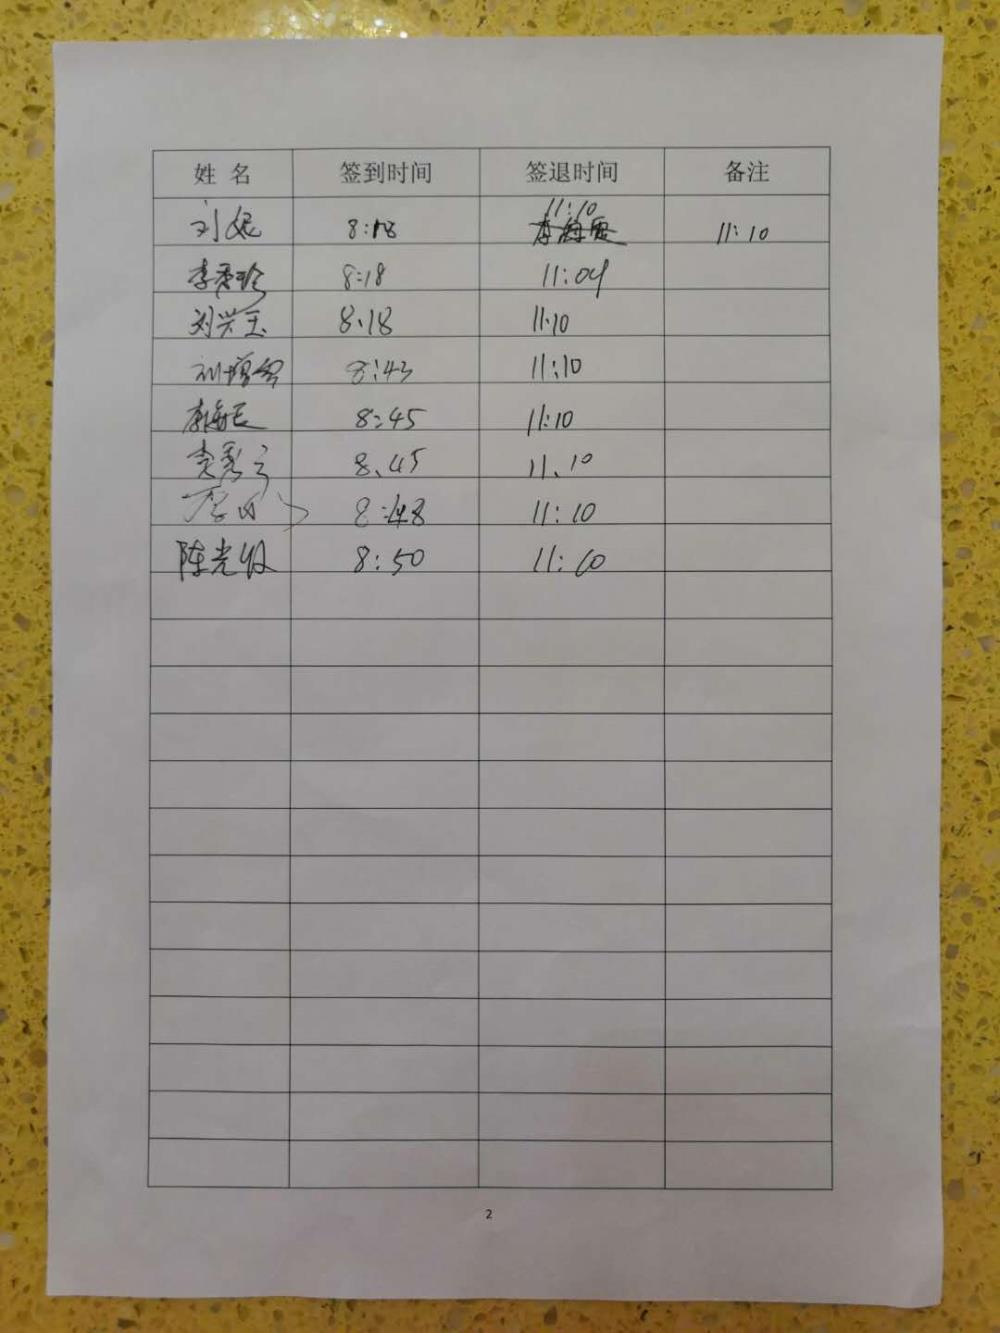 姓 名 签到时间 签退时间 备注
11:10
刘妮 8:18 11:10
李秀珍 8:18 11:04
刘兴玉 8:18 11:10
8:43 11:10
李海 8:45 11:10
8、45 11、10
8:48 11:10
陈光 8:50 11:10
2